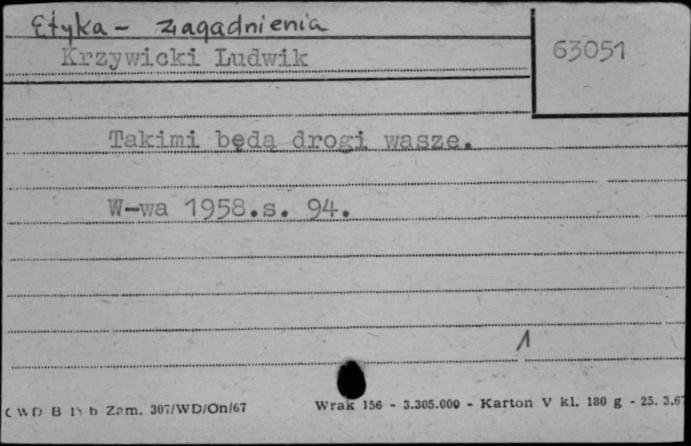 Etyka - zagadnienia
63051
Krzywicki Ludwik
Takimi będą drogi wasze.
W-wa 1958.s. 94.
1
CWD B Zam. 307/WD/On/67 Wrak 156 - 3.305.000 - Karton V kl. 180 g - 25. 3.67